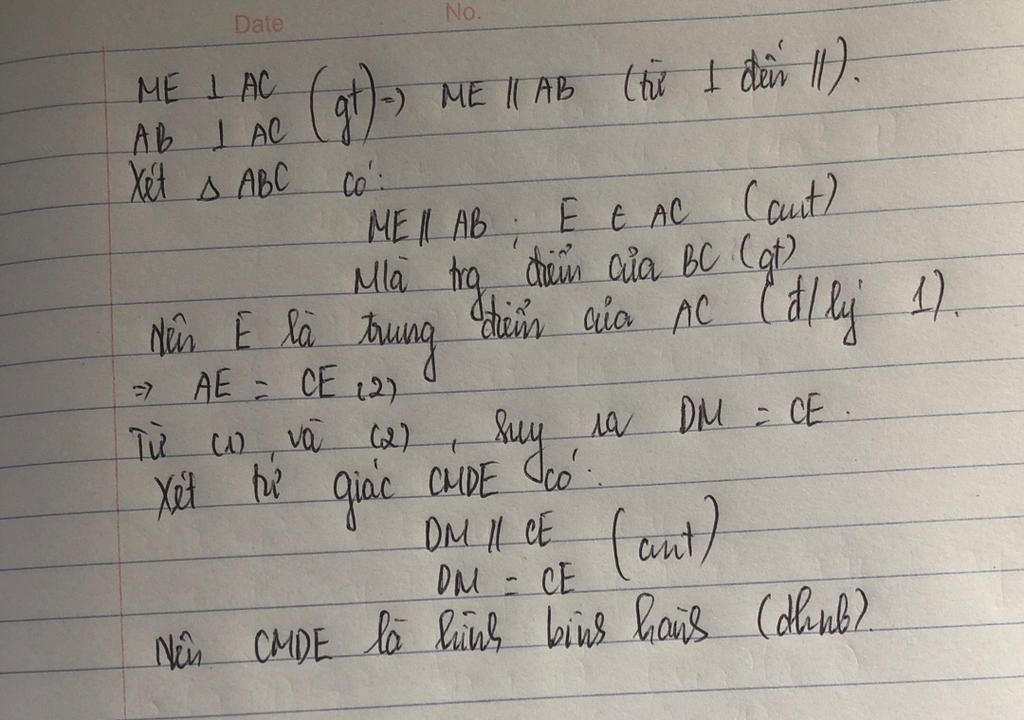 Date No.
ME ⊥ AC
AB ⊥ AC (gt) => ME // AB (từ ⊥ đến //).
Xét Δ ABC có:
ME // AB ; E ∈ AC (cmt)
M là trg điểm của BC (gt)
Nên E là trung điểm của AC (đ/lý 1).
=> AE = CE (2)
Từ (1) và (2), suy ra DM = CE.
Xét tứ giác CMDE có:
DM // CE
DM = CE (cmt)
Nên CMDE là hình bình hành (dhnb).